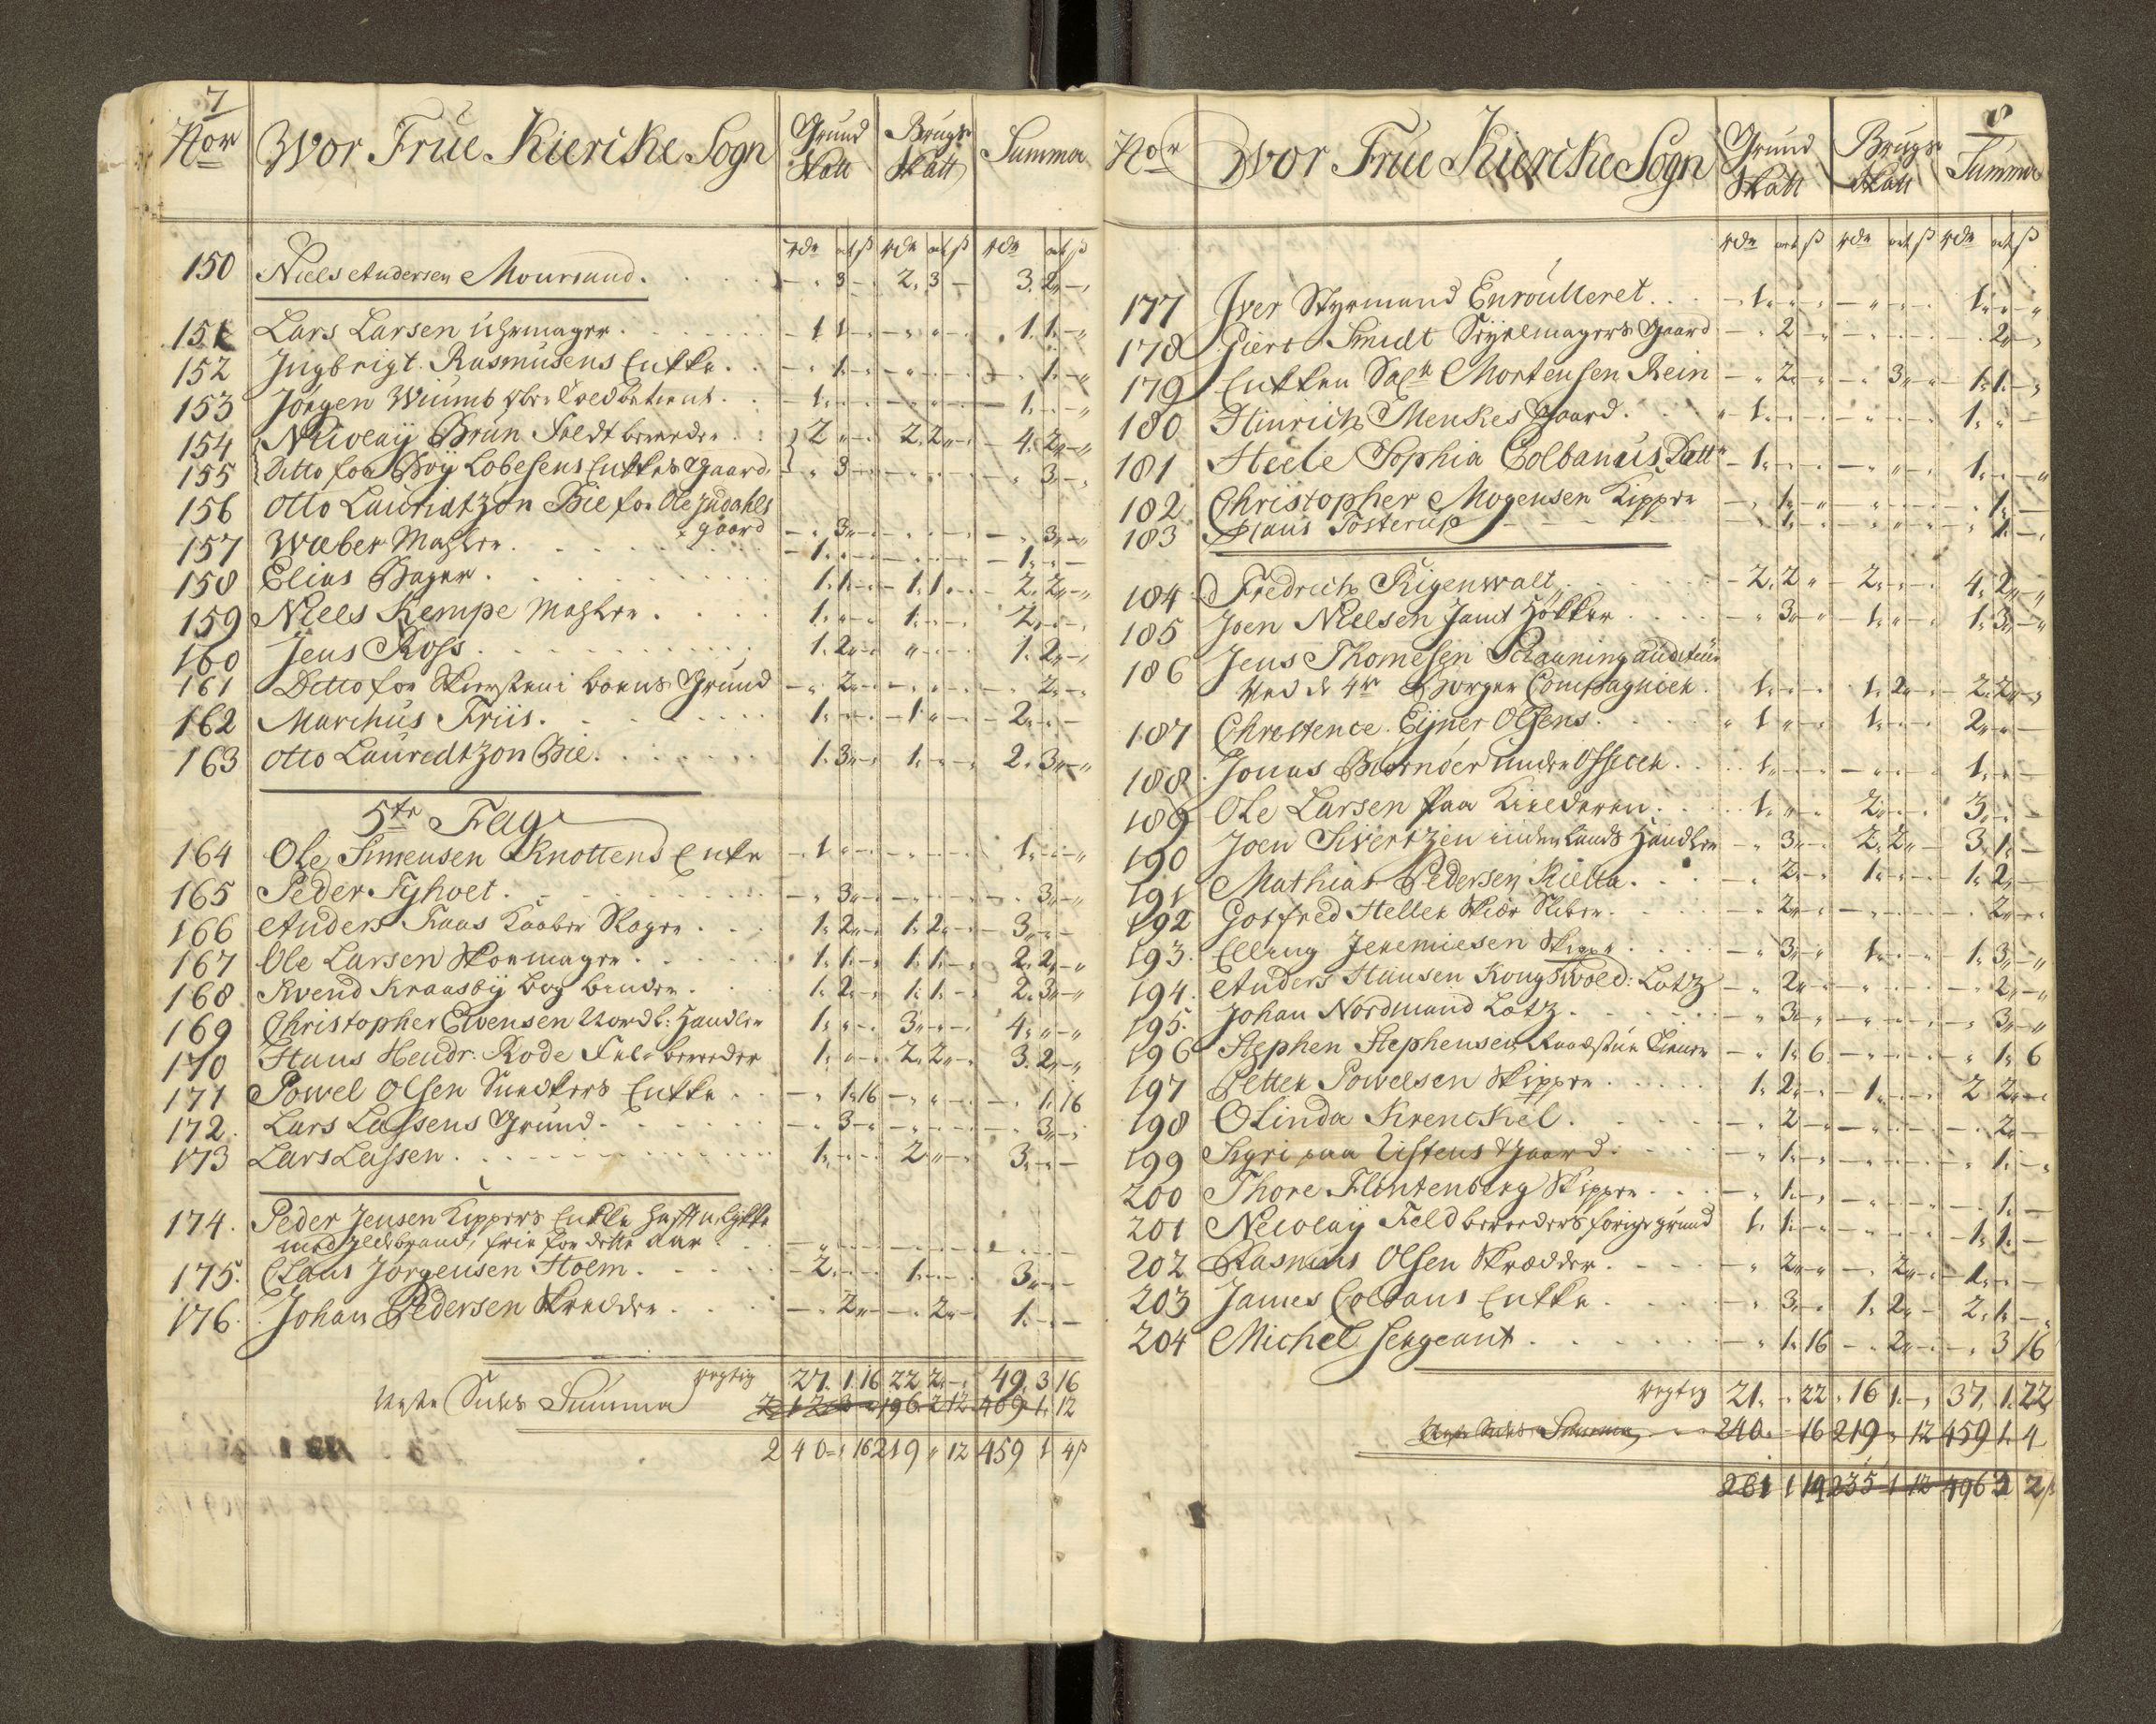 7
Nor Wor Frue Kiercke Sogn Grund Skatt Brugs Skatt Summa
rdr ort ß rdr ort ß rdr ort ß
150 Niels Andersen Moursund. - " 3 - 2. 3 - 3. 2 -
151 Lars Larsen Uhrmager. - 1 1 - - " - 1. 1. -
152 Ingbrigt Rasmusens Enkke. - " 1. - - " - - " 1. -
153 Jörgen Wiumb - 1. - - 1. -
154 Nicolaÿ Brun Feldt bereeder. 2 " - 2. 2 - 4. 2 -
155 Ditto for Boÿ Lobesens Enkkes Gaard. " 3 - - " 3 -
156 Otto Lauridtzon Bie for Ole Judahls
gaard - " 3 - - " - - " 3 -
157 Weber Mahler. - 1. - - 1. -
158 Elias Hager. 1. 1. - 1. 1. - 2. 2 -
159 Niels Kempe Mahler. 1. " - 1. - 2. -
160 Jens Ross. 1. 2 - " - 1. 2 -
161 Ditto for Grund - " 2. - - - " 2. -
162 Marchus Friis. 1. - - 1 " - 2. -
163 Otto Lauredtzon Bie. 1. 3 - 1. - 2. 3 -
5te Fag
164 Ole Simensen Knottend Enke - 1 " - - 1. -
165 Peder Fÿhoet. - " 3 - - - " 3 -
166 Anders Kaaber Slager. 1. 2 - 1. 2 - 3. -
167 Ole Larsen Skoemager. 1. 1. - 1. 1. - 2. 2 -
168 Svend Kraasbÿ Bog binder. 1. 2. - 1. 1. - 2. 3 -
169 Christopher Elvensen Nordl: Handler 1. " - 3 " - 4. " -
170 Hans Hendr: Rode Fel bereeder 1. " - 2. 2 - 3. 2 -
171 Powel Olsen Snedkers Enkke. - " 1. 16 - " - - " 1. 16
172. Lars Lassens Grund. - " 3 - - - " 3 -
173 Lars Lassen. 1. - 2 " - 3. -
174. Peder Jensen Kippers Enkke
med Ildebrand, frie for dette aar
175. Claus Jörgensen Hoem. - 2. - 1. - 3. -
176. Johan Pedersen Skredder. - " 2 - - " 2 - 1. -
27. 1. 16 22 2 - 49. 3 16
Summa 196. 2 12 409. 1. 12
240 " 16 219 " 12 459 1 4ß
8
Nor Wor Frue Kiercke Sogn Grund Skatt Brugs Skatt Summa
rdr ort ß rdr ort ß rdr ort ß
177 Iver Styrmand Enroulleret. - 1. " - - " - 1. " -
178 Giert Smidt Seÿelmagers Gaard - " 2 - - " 2 -
179 Enkken Sal: Mortensen Rein - " 2. - - " 3 - 1. 1. -
180 Hinrich Menkes Gaard. 1. - - 1. " -
181 Heele Sophia Colbanus Datt - 1. - - 1. -
182 Christopher Mogensen Kipper - " 1. - - " 1. -
183 Claus Tosterup - " 1. - - " 1. -
184. Fredrich Rigenwalt. - 2. 2 - 2. - 4. 2 -
185 Joen Nielsen Jamt Høkker - " 3 - 1. " - 1. 3 -
186 Jens Thomesen auditeur
Ved d 4de Borger Compagniek. 1. - 1. 2 - 2. 2 -
187 Chrestence Eÿner Olsens. 1 " - 1. - 2. -
188. Jonas Biörnöer under Officer. 1. - - 1. -
189 Ole Larsen paa Kielderen. 1. " - 2. - 3. -
190 Joen Sivertzen uden lands Handler - " 3 - 2. 2 - 3. 1. -
191 Mathias Pedersen Kiella. - " 2. - 1. - 1. 2. -
192 Gotfred Heller - " 2 - - " 2 -
193. Elling Jeremiesen - " 3. - 1. - 1. 3 -
194. Anders Hansen Kongswold: Lotz - " 2 - - " 2 -
195. Johan Nordmand Lotz. - " 3 - - " 3 -
196 Stephen Stephensen Raadstue Tiener - " 1. 6 - " 1. 6
197 Petter Powelsen Skipper. 1. 2. - 1. - 2 2 -
198 Olinda Krenckel. - " 2 - - " 2 -
199 Sigri paa Gaard. - " 1. - - " 1. -
200 Thore Flintenberg Skipper. - " 1. - - " 1. -
201 Necolaÿ Feld bereeders forige grund 1. 1. - - 1. 1. -
202 Rasmus Olsen Skrædder. - " 2 - " 2 - 1. -
203 James Coltans Enkke. - " 3. - 1. 2 - 2. 1. -
204 Michel Sergeant. - " 1. 16 - " 2 - - " 3 16
21. " 22 " 16 1. - 37. 1. 22
Summa 240 " 16 219 " 12 459 1. 4
261 1 14 235 1 12 496 3 2ß